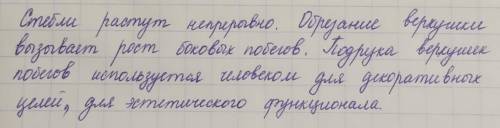 Стебли растут непрерывно. Обрезание верхушки
вызывает рост боковых побегов. Подрука верхушек
побегов используется человеком для декоративных
целей, для эстетического функционала.